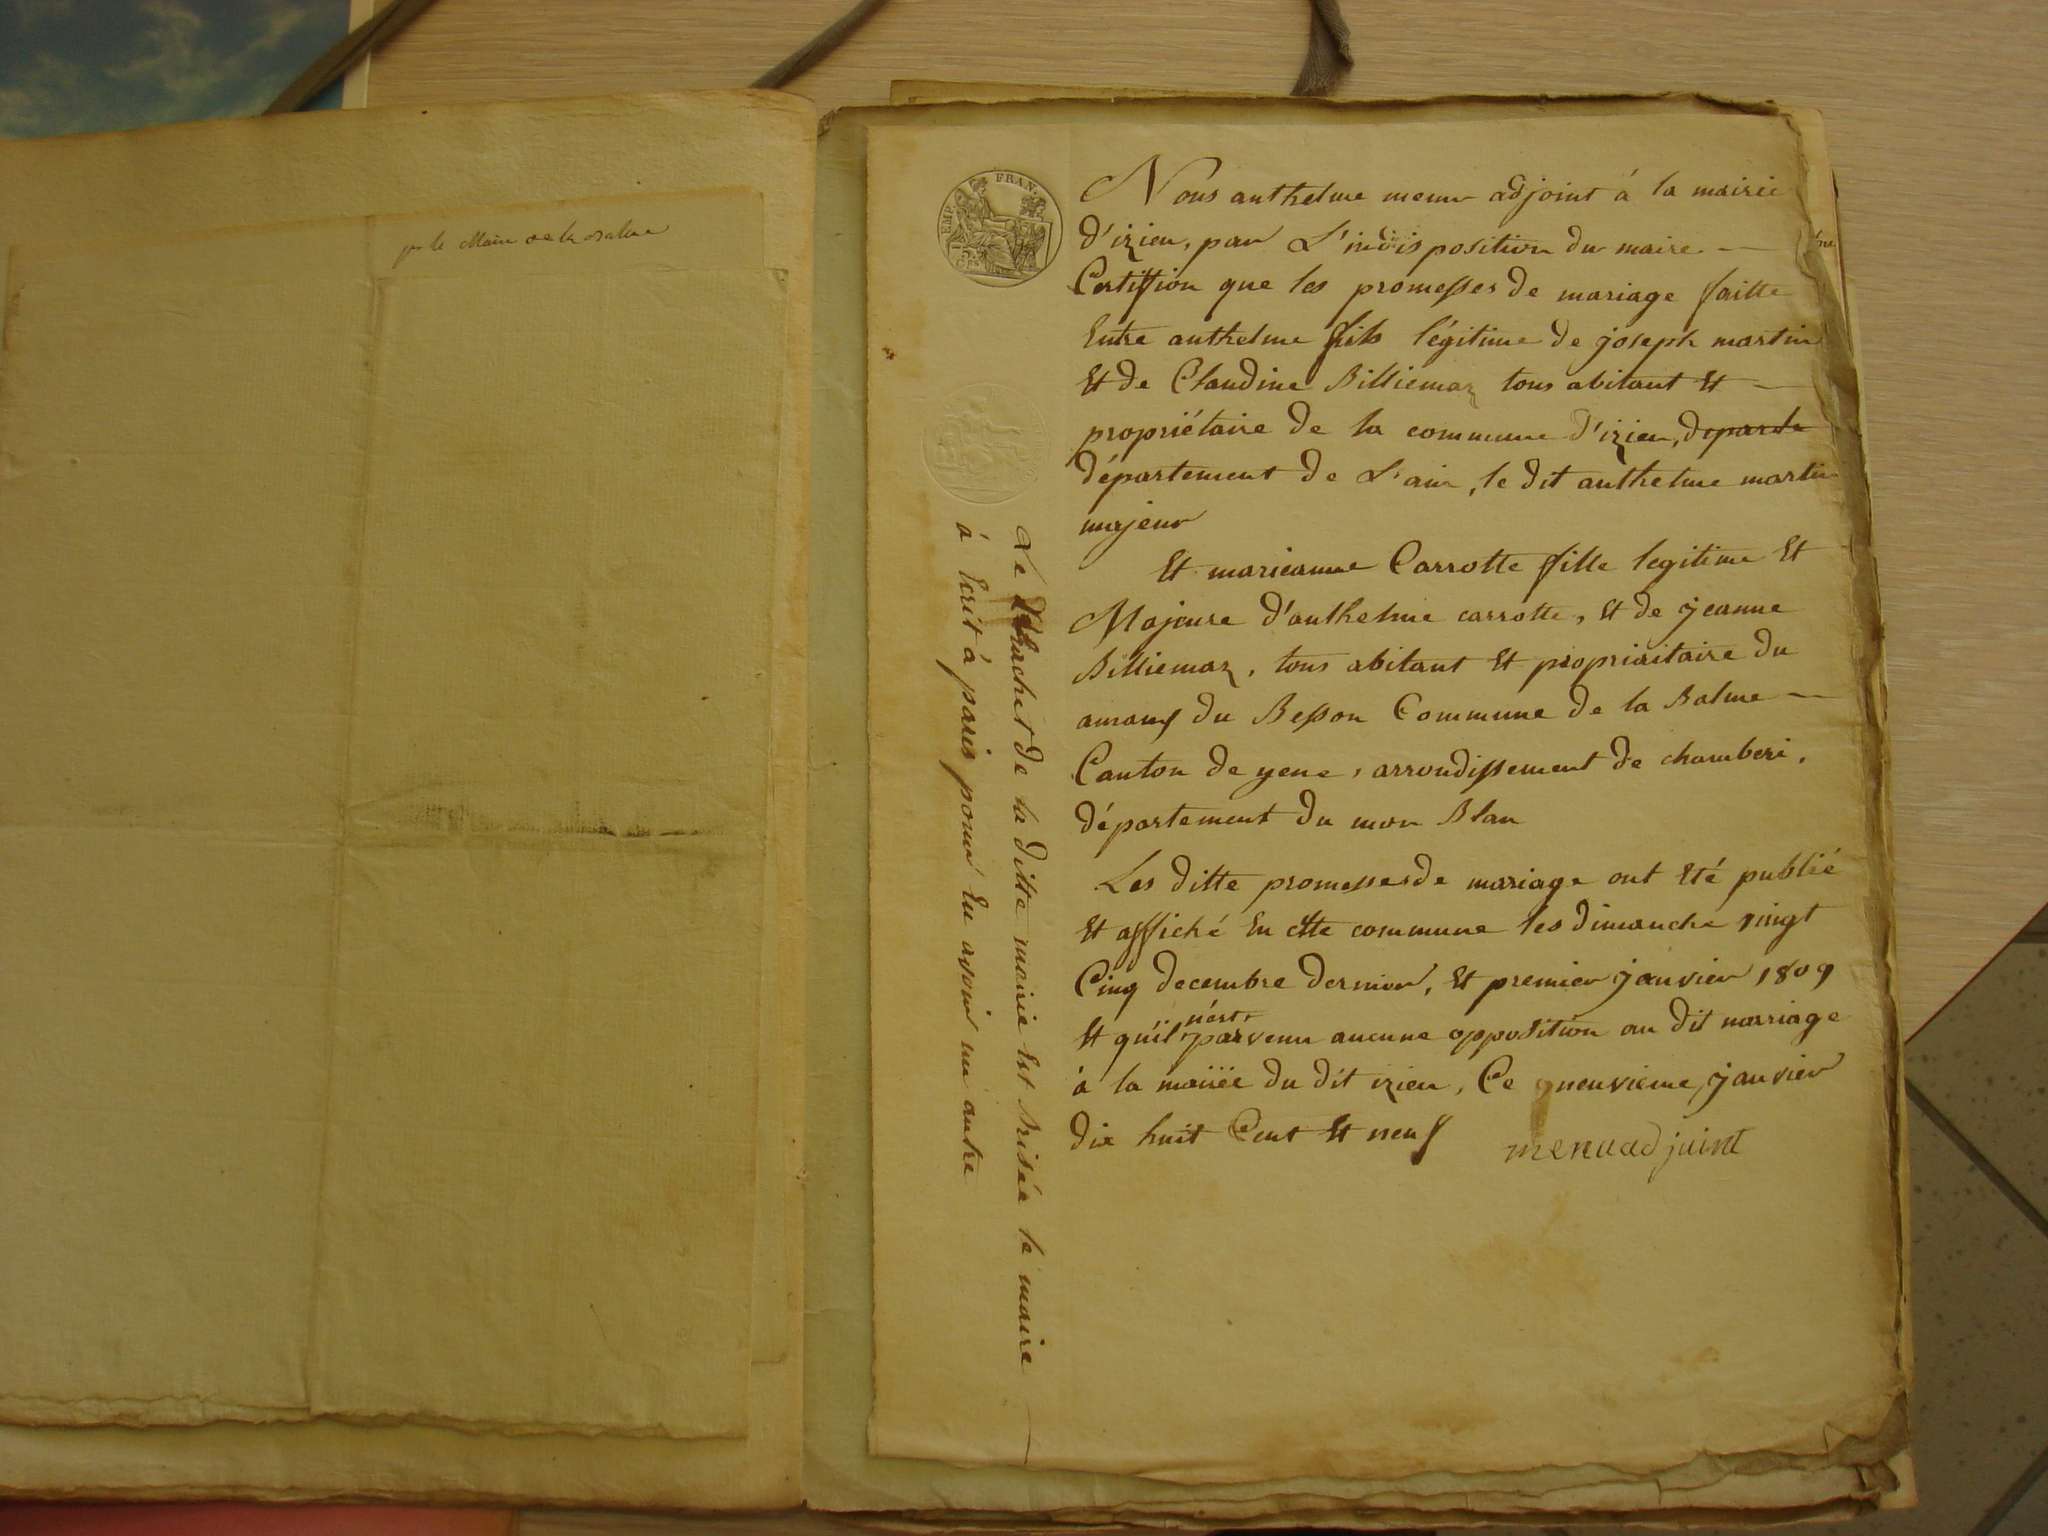 pr le Maire de la Balme
EMP. FRAN.
Nous anthelme menu adjoint à la mairie
D'izieu, par L'indisposition du maire —
Certiffion que les promesses de mariage faitte
Entre anthelme fils légitime de joseph martin
Et de Claudine Billiemaz tous abitant Et —
propriétaire de la commune D'izieu, departe
département de L'ain, le dit anthelme martin
majeur
Et marieanne Carrotte fille legitime Et
Majeure d'anthelme carrotte, Et de jeanne
Billiemaz, tous abitant Et propriaitaire du
du Besson Commune de la Balme —
Canton de yene, arrondissement de chamberi,
département du mon Blan
Les ditte promesses de mariage ont Eté publié
Et affiché En cette commune les dimanche vingt
Cinq decembre dernier, Et premier janvier 1809
Et qu'il n'est parvenu aucune opposition au dit marriage
à la mairie du dit izieu, Ce neuvieme janvier
dix huit Cent Et neuf
menu adjoint
Le Cachet de la ditte mairie Est brisée le maire
à Ecrit à paris pour En avoir un autre